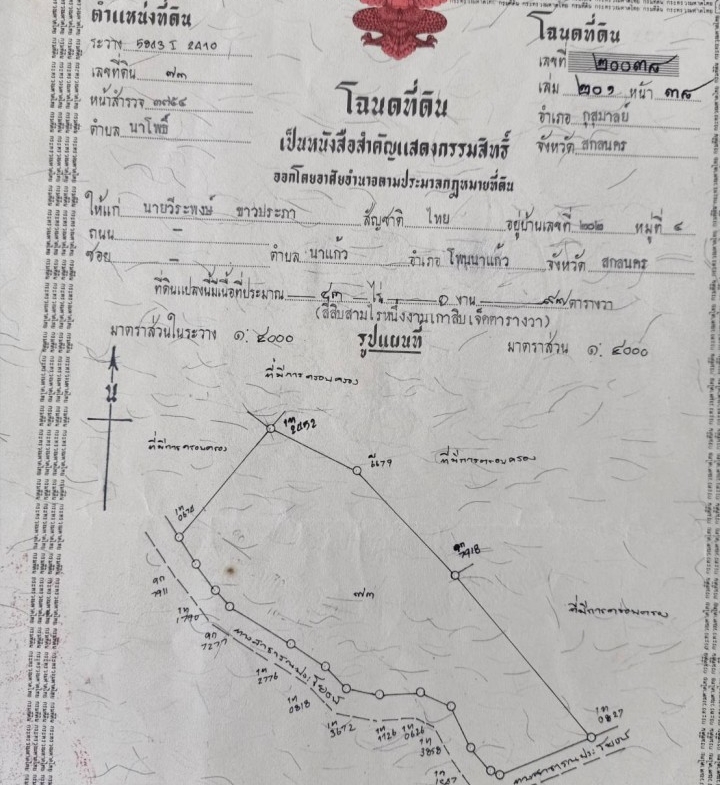 ตำแหน่งที่ดิน
ระวาง 5843 I 2410
เลขที่ดิน ๗๓
หน้าสำรวจ ๓๗๕๔
ตำบล นาโพธิ์
โฉนดที่ดิน
เลขที่ ๒๐๐๓๘
เล่ม ๒๐๑ หน้า ๓๘
อำเภอ กุสุมาลย์
จังหวัด สกลนคร
โฉนดที่ดิน
เป็นหนังสือสำคัญแสดงกรรมสิทธิ์
ออกโดยอาศัยอำนาจตามประมวลกฎหมายที่ดิน
ให้แก่ นายวีระพงษ์ ขาวประภา สัญชาติ ไทย อยู่บ้านเลขที่ ๒๐๒ หมู่ที่ ๔
ถนน –
ซอย – ตำบล นาแก้ว อำเภอ โพนนาแก้ว จังหวัด สกลนคร
ที่ดินแปลงนี้มีเนื้อที่ประมาณ ๔๓ ไร่ ๑ งาน ๙๗ ตารางวา
(สี่สิบสามไร่หนึ่งงานเก้าสิบเจ็ดตารางวา)
มาตราส่วนในระวาง ๑:๔๐๐๐ รูปแผนที่ มาตราส่วน ๑:๔๐๐๐
น
ที่มีการครอบครอง
ที่มีการครอบครอง
ที่มีการครอบครอง
ที่มีการครอบครอง
๗๓
ทางสาธารณประโยชน์
ทางสาธารณประโยชน์
1679
7918
0674
7911
1790
7277
2776
0818
3672
1126
0626
3858
0827